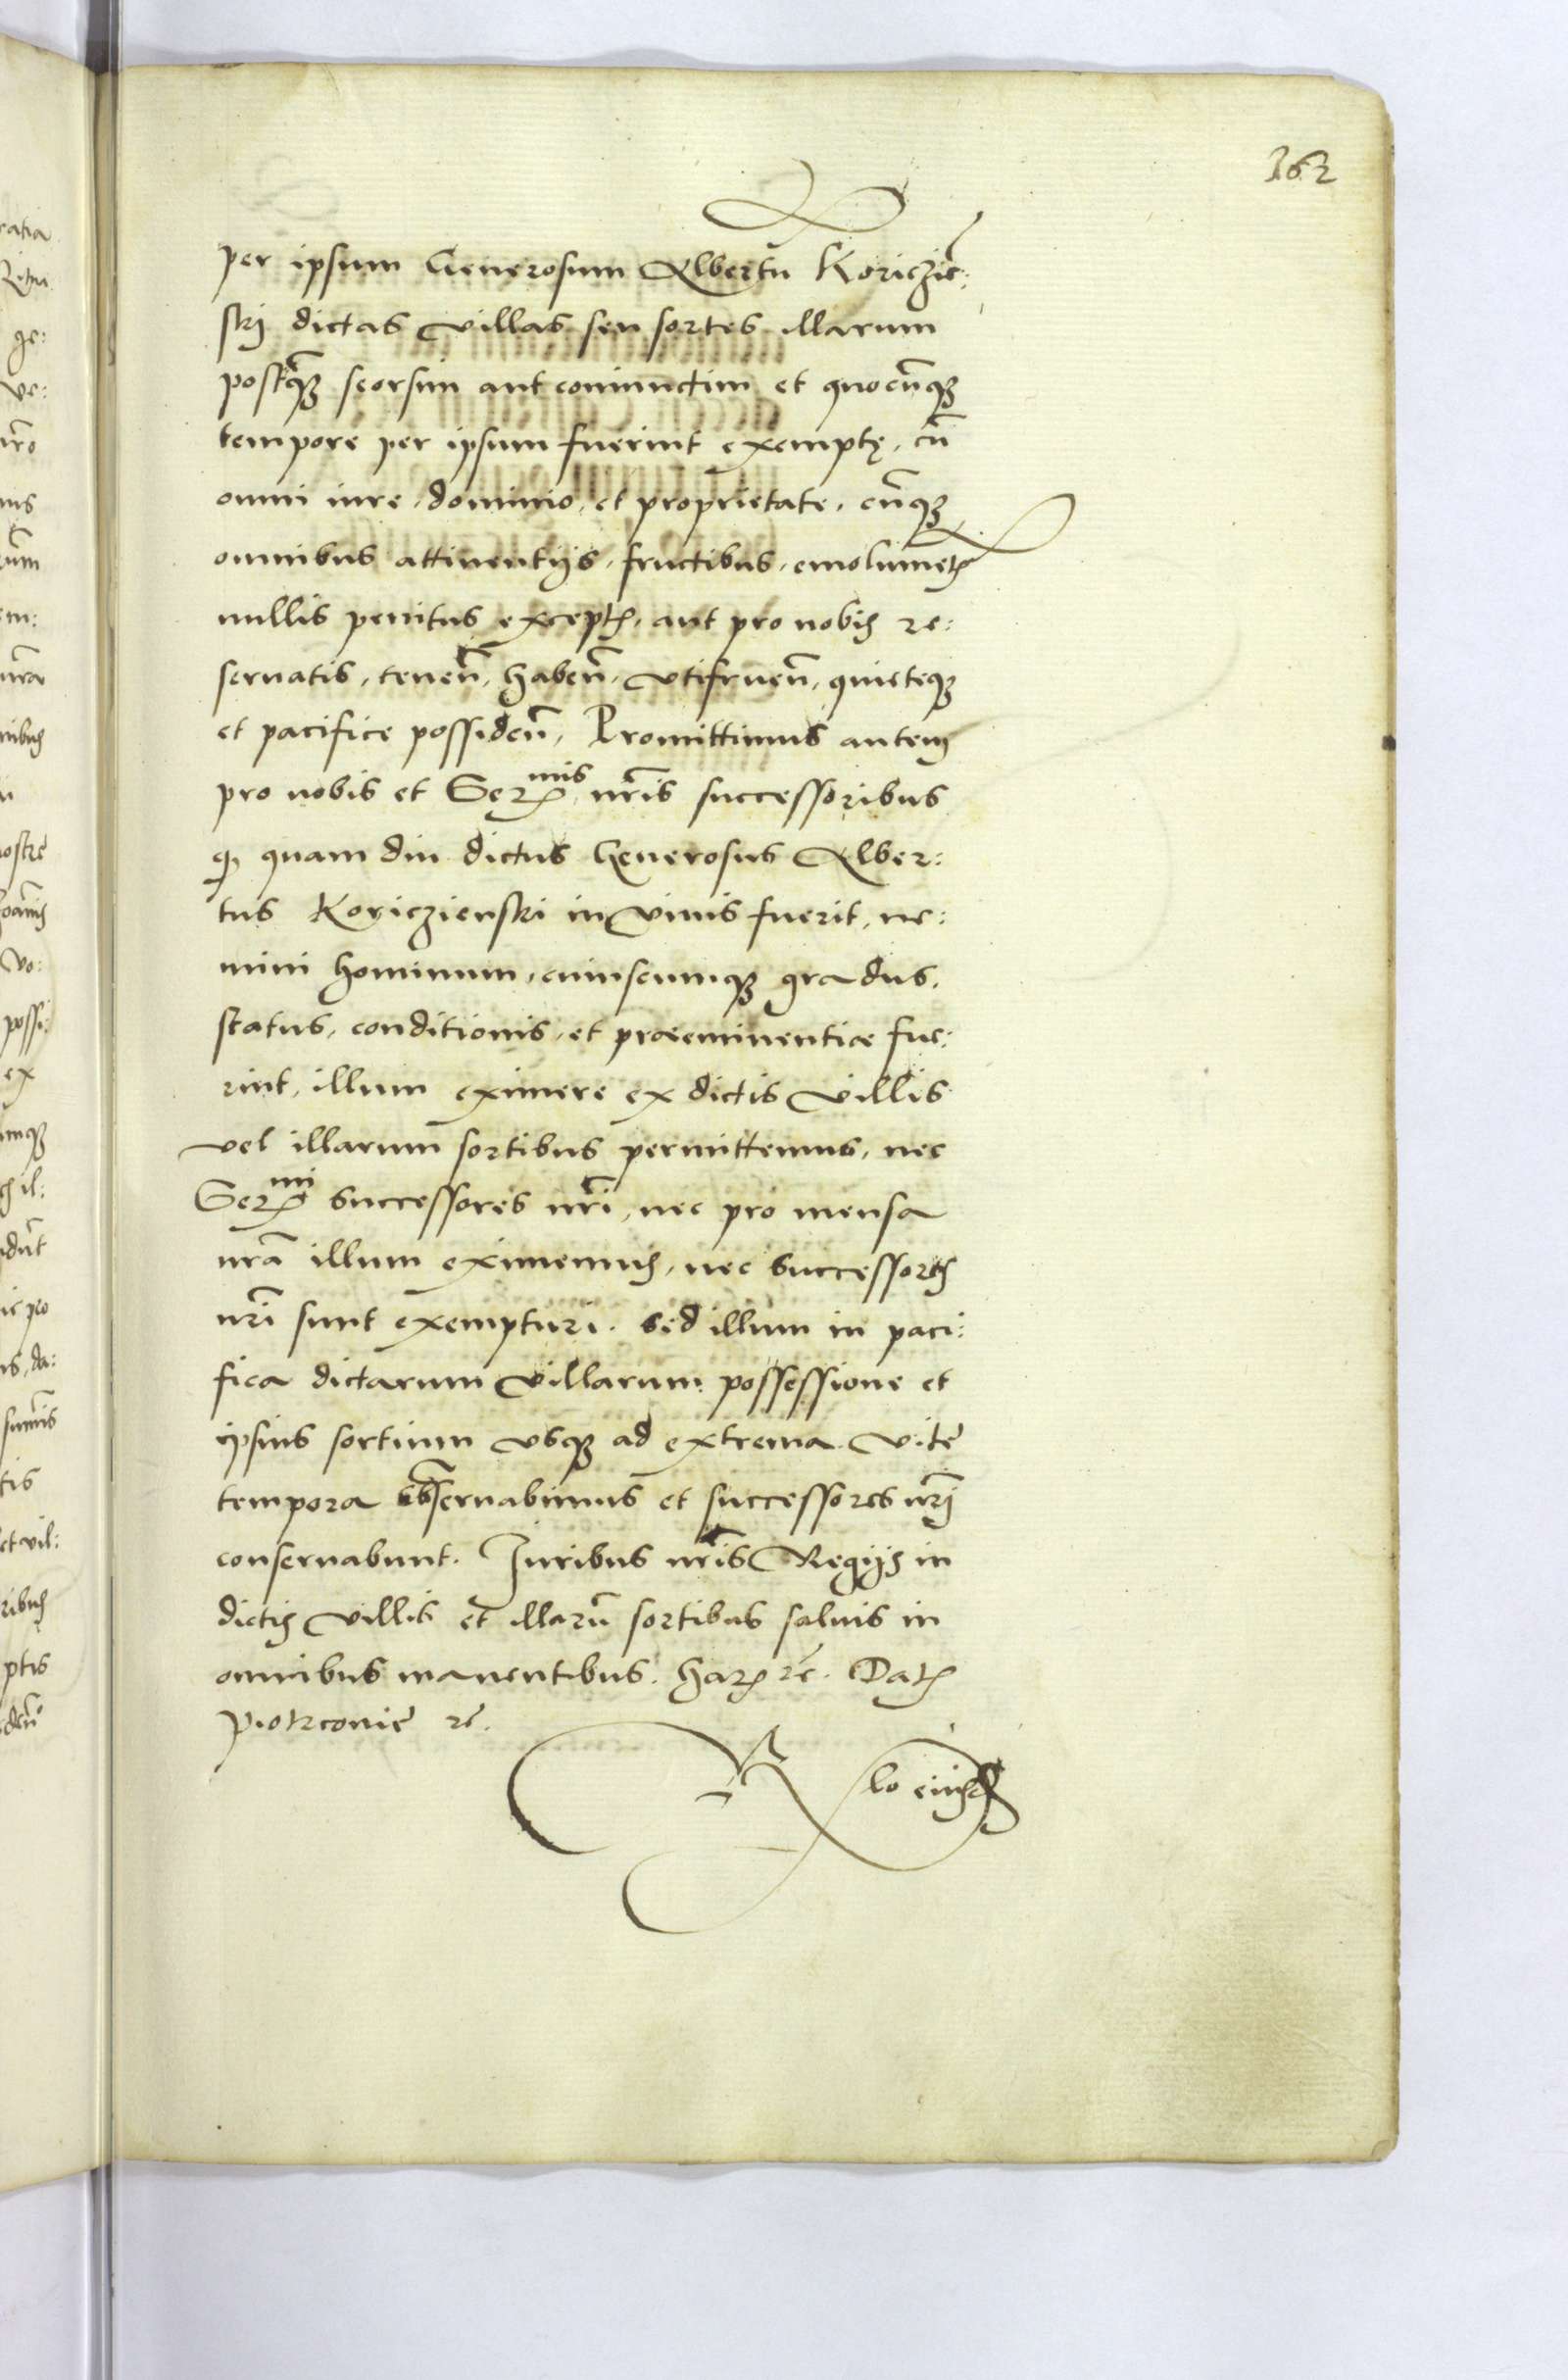 162
per ipsum Generosum Albertū Koriczień:
skj dictas villas seu sortes illarum
postq̃ꝫ seorsim aut coniunctim et quocūqꝫ
tempore per ipsum fuerint exemptę, cū
omni iure, dominio, et proprietate, cūqꝫ
omnibus attinentijs, fructibus, emolumētꝭ
nullis penitus exceptꝭ, aut pro nobis re:
seruatis, tenen̄, haben̄, vtifruen̄, quieteqꝫ
et pacifice possiden̄, Promittimus autem
pro nobis et Serᵐⁱˢ nr̃is successoribus
ꝙ quam diu dictus Generosus Alber:
tus Koriczienski in viuis fuerit, ne:
mini hominum, cuiuscumqꝫ gradus,
status, conditionis, et præeminentiæ fue:
rint, illum eximere ex dictis villis
vel illarum sortibus permittemus, nec
Serᵐⁱ successores nr̃i, nec pro mensa
nrã illum eximemus, nec successores
nr̃i sunt exempturi. sed illum in paci:
fica dictarum villarum possessione et
ipsius sortium vsqꝫ ad extrema vitę
tempora obseruabimus et successores nr̃j
conseruabunt. Iuribus nr̃is Regijs in
dictis villis et illarū sortibus saluis in
omnibus manentibus. Harꝭ rc̃. Datꝭ
Piotrconię rc̃.